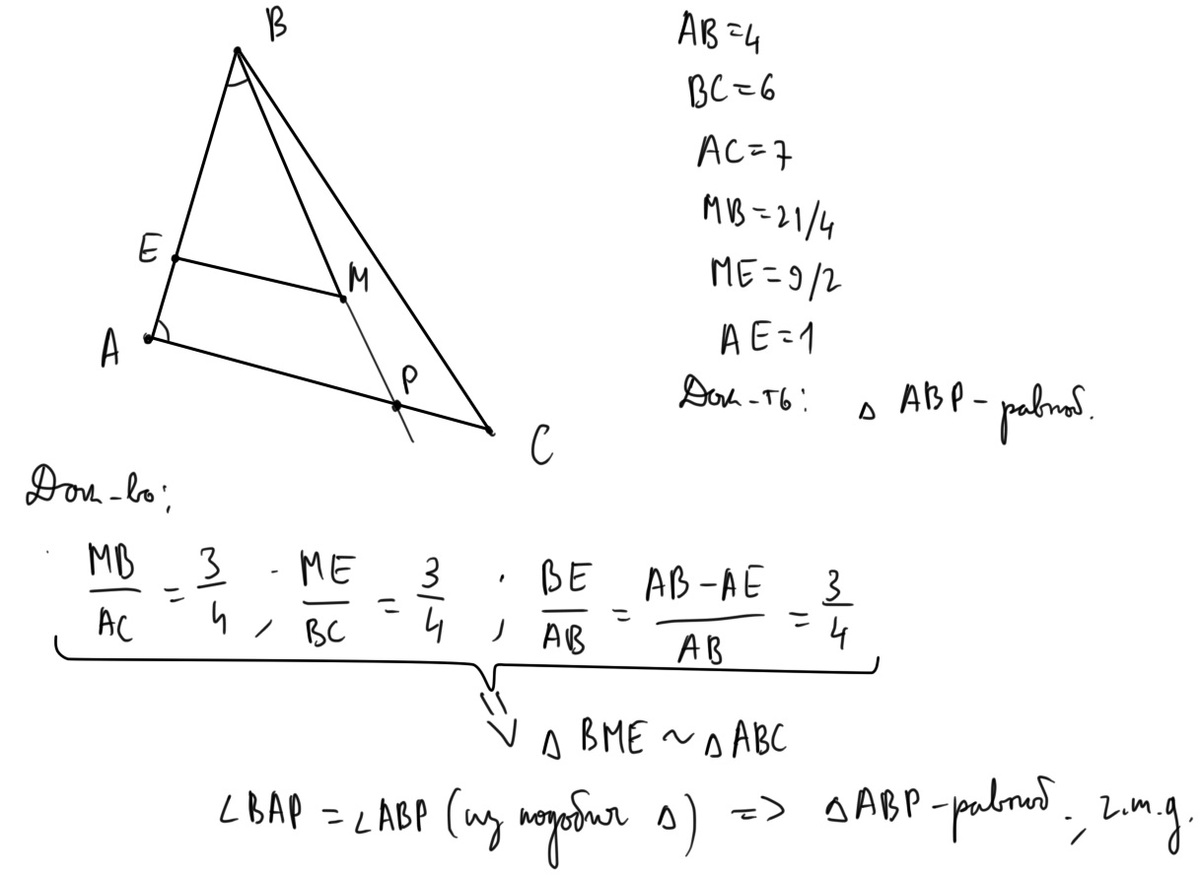 B
E
M
A
P
C
AB = 4
BC = 6
AC = 7
MB = 21/4
ME = 9/2
AE = 1
Док-ть: △ ABP - равноб.
Док-во:
MB/AC = 3/4, ME/BC = 3/4; BE/AB = (AB - AE)/AB = 3/4
⇓ △ BME ~ △ ABC
∠BAP = ∠ABP (из подобия △) => △ABP - равноб., ч.т.д.